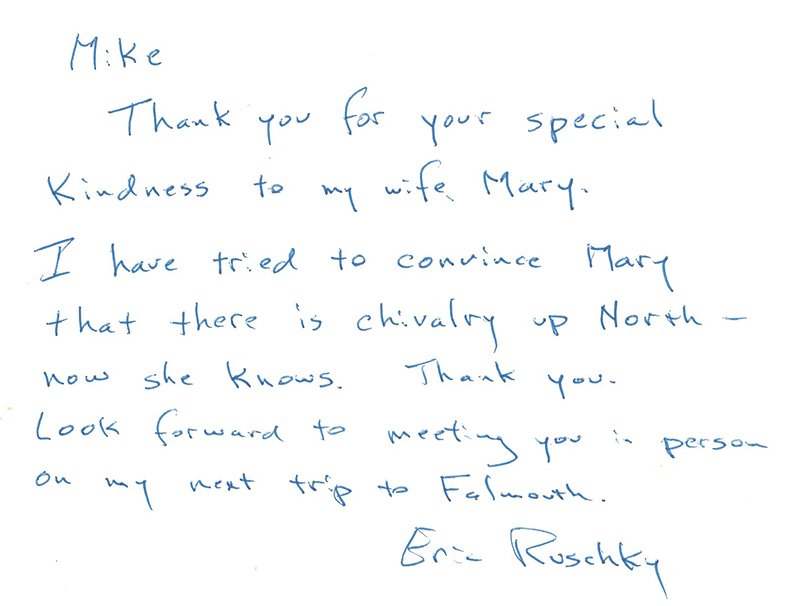 Mike
Thank you for your special
Kindness to my wife Mary.
I have tried to convince Mary
that there is chivalry up North –
now she knows. Thank you.
Look forward to meeting you in person
on my next trip to Falmouth.
Eric Ruschky